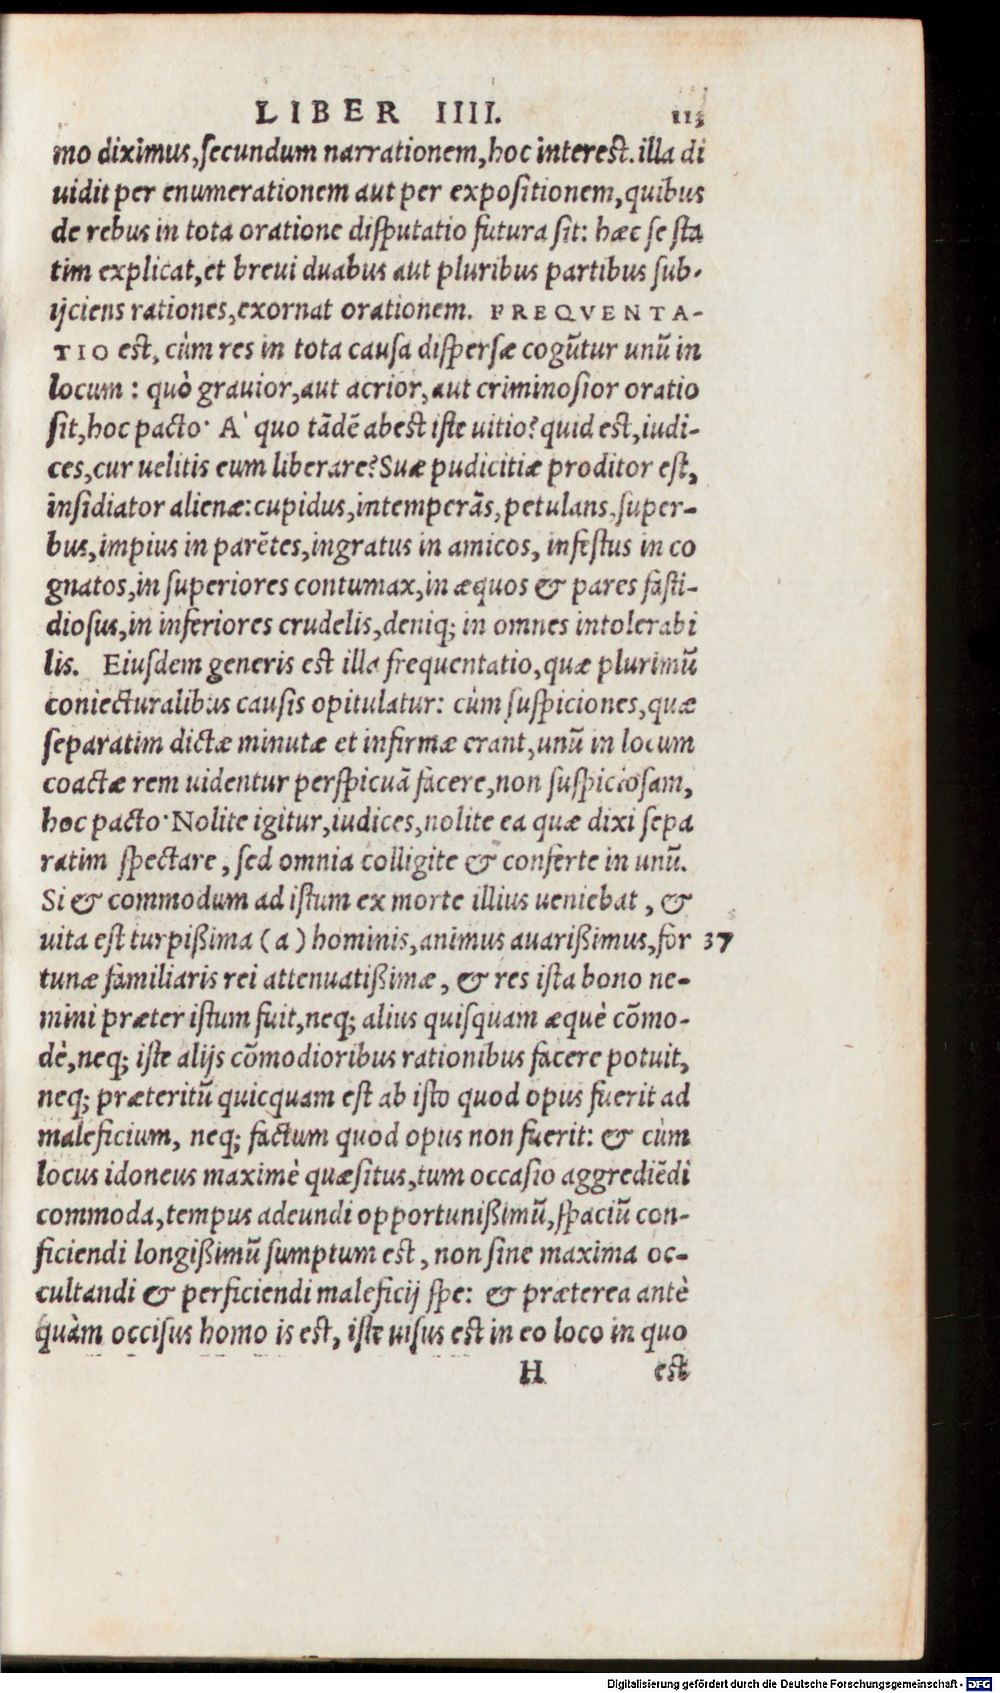 LIBER IIII. 113
mo diximus, secundum narrationem, hoc interest. illa di
uidit per enumerationem aut per expositionem, quibus
de rebus in tota oratione disputatio futura sit: hæc se sta
tim explicat, et breui duabus aut pluribus partibus sub-
ijciens rationes, exornat orationem. FREQVENTA-
TIO est, cùm res in tota causa dispersæ cogũtur unũ in
locum: quò grauior, aut acrior, aut criminosior oratio
sit, hoc pacto· A` quo tãdẽ abest iste uitio? quid est, iudi-
ces, cur uelitis eum liberare? Suæ pudicitiæ proditor est,
insidiator alienæ: cupidus, intemperãs, petulans, super-
bus, impius in parẽtes, ingratus in amicos, infestus in co
gnatos, in superiores contumax, in æquos & pares fasti-
diosus, in inferiores crudelis, deniq; in omnes intolerabi
lis. Eiusdem generis est illa frequentatio, quæ plurimũ
coniecturalibus causis opitulatur: cùm suspiciones, quæ
separatim dictæ minutæ et infirmæ erant, unũ in locum
coactæ rem uidentur perspicuã facere, non suspiciosam,
hoc pacto· Nolite igitur, iudices, nolite ea quæ dixi sepa
ratim spectare, sed omnia colligite & conferte in unũ.
Si & commodum ad istum ex morte illius ueniebat, &
uita est turpißima (a) hominis, animus auarißimus, for 37
tunæ familiaris rei attenuatißimæ, & res ista bono ne-
mini præter istum fuit, neq; alius quisquam æquè cõmo-
dè, neq; iste alijs cõmodioribus rationibus facere potuit,
neq; præteritũ quicquam est ab isto quod opus fuerit ad
maleficium, neq; factum quod opus non fuerit: & cùm
locus idoneus maximè quæsitus, tum occasio aggrediẽdi
commoda, tempus adeundi opportunißimũ, spaciũ con-
ficiendi longißimũ sumptum est, non sine maxima oc-
cultandi & perficiendi maleficij spe: & præterea antè
quàm occisus homo is est, iste uisus est in eo loco in quo
H est
Digitalisierung gefördert durch die Deutsche Forschungsgemeinschaft - DFG